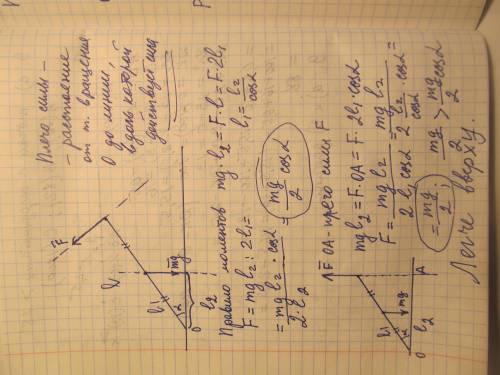 Плечо силы –
– расстояние
от т. вращения
О до линии,
вдоль которой
действует сила
F
l₁
mg
α
O
l₂
Правило моментов mg·l₂ = F·l = F·2l₁
F = mg l₂ : 2l₁ =
l₁ = l₂/cosα
= mg l₂/(2·l₂) · cosα = mg/2 cosα
F
OA - плечо силы F
mg l₂ = F·OA = F·2l₁·cosα
F = mg l₂/(2 l₁ cosα) = mg l₂/(2 l₂/cosα · cosα) =
= mg/2 ;
mg/2 > mg/2 cosα
l₁
mg
α
O
l₂
A
Легче вверху.